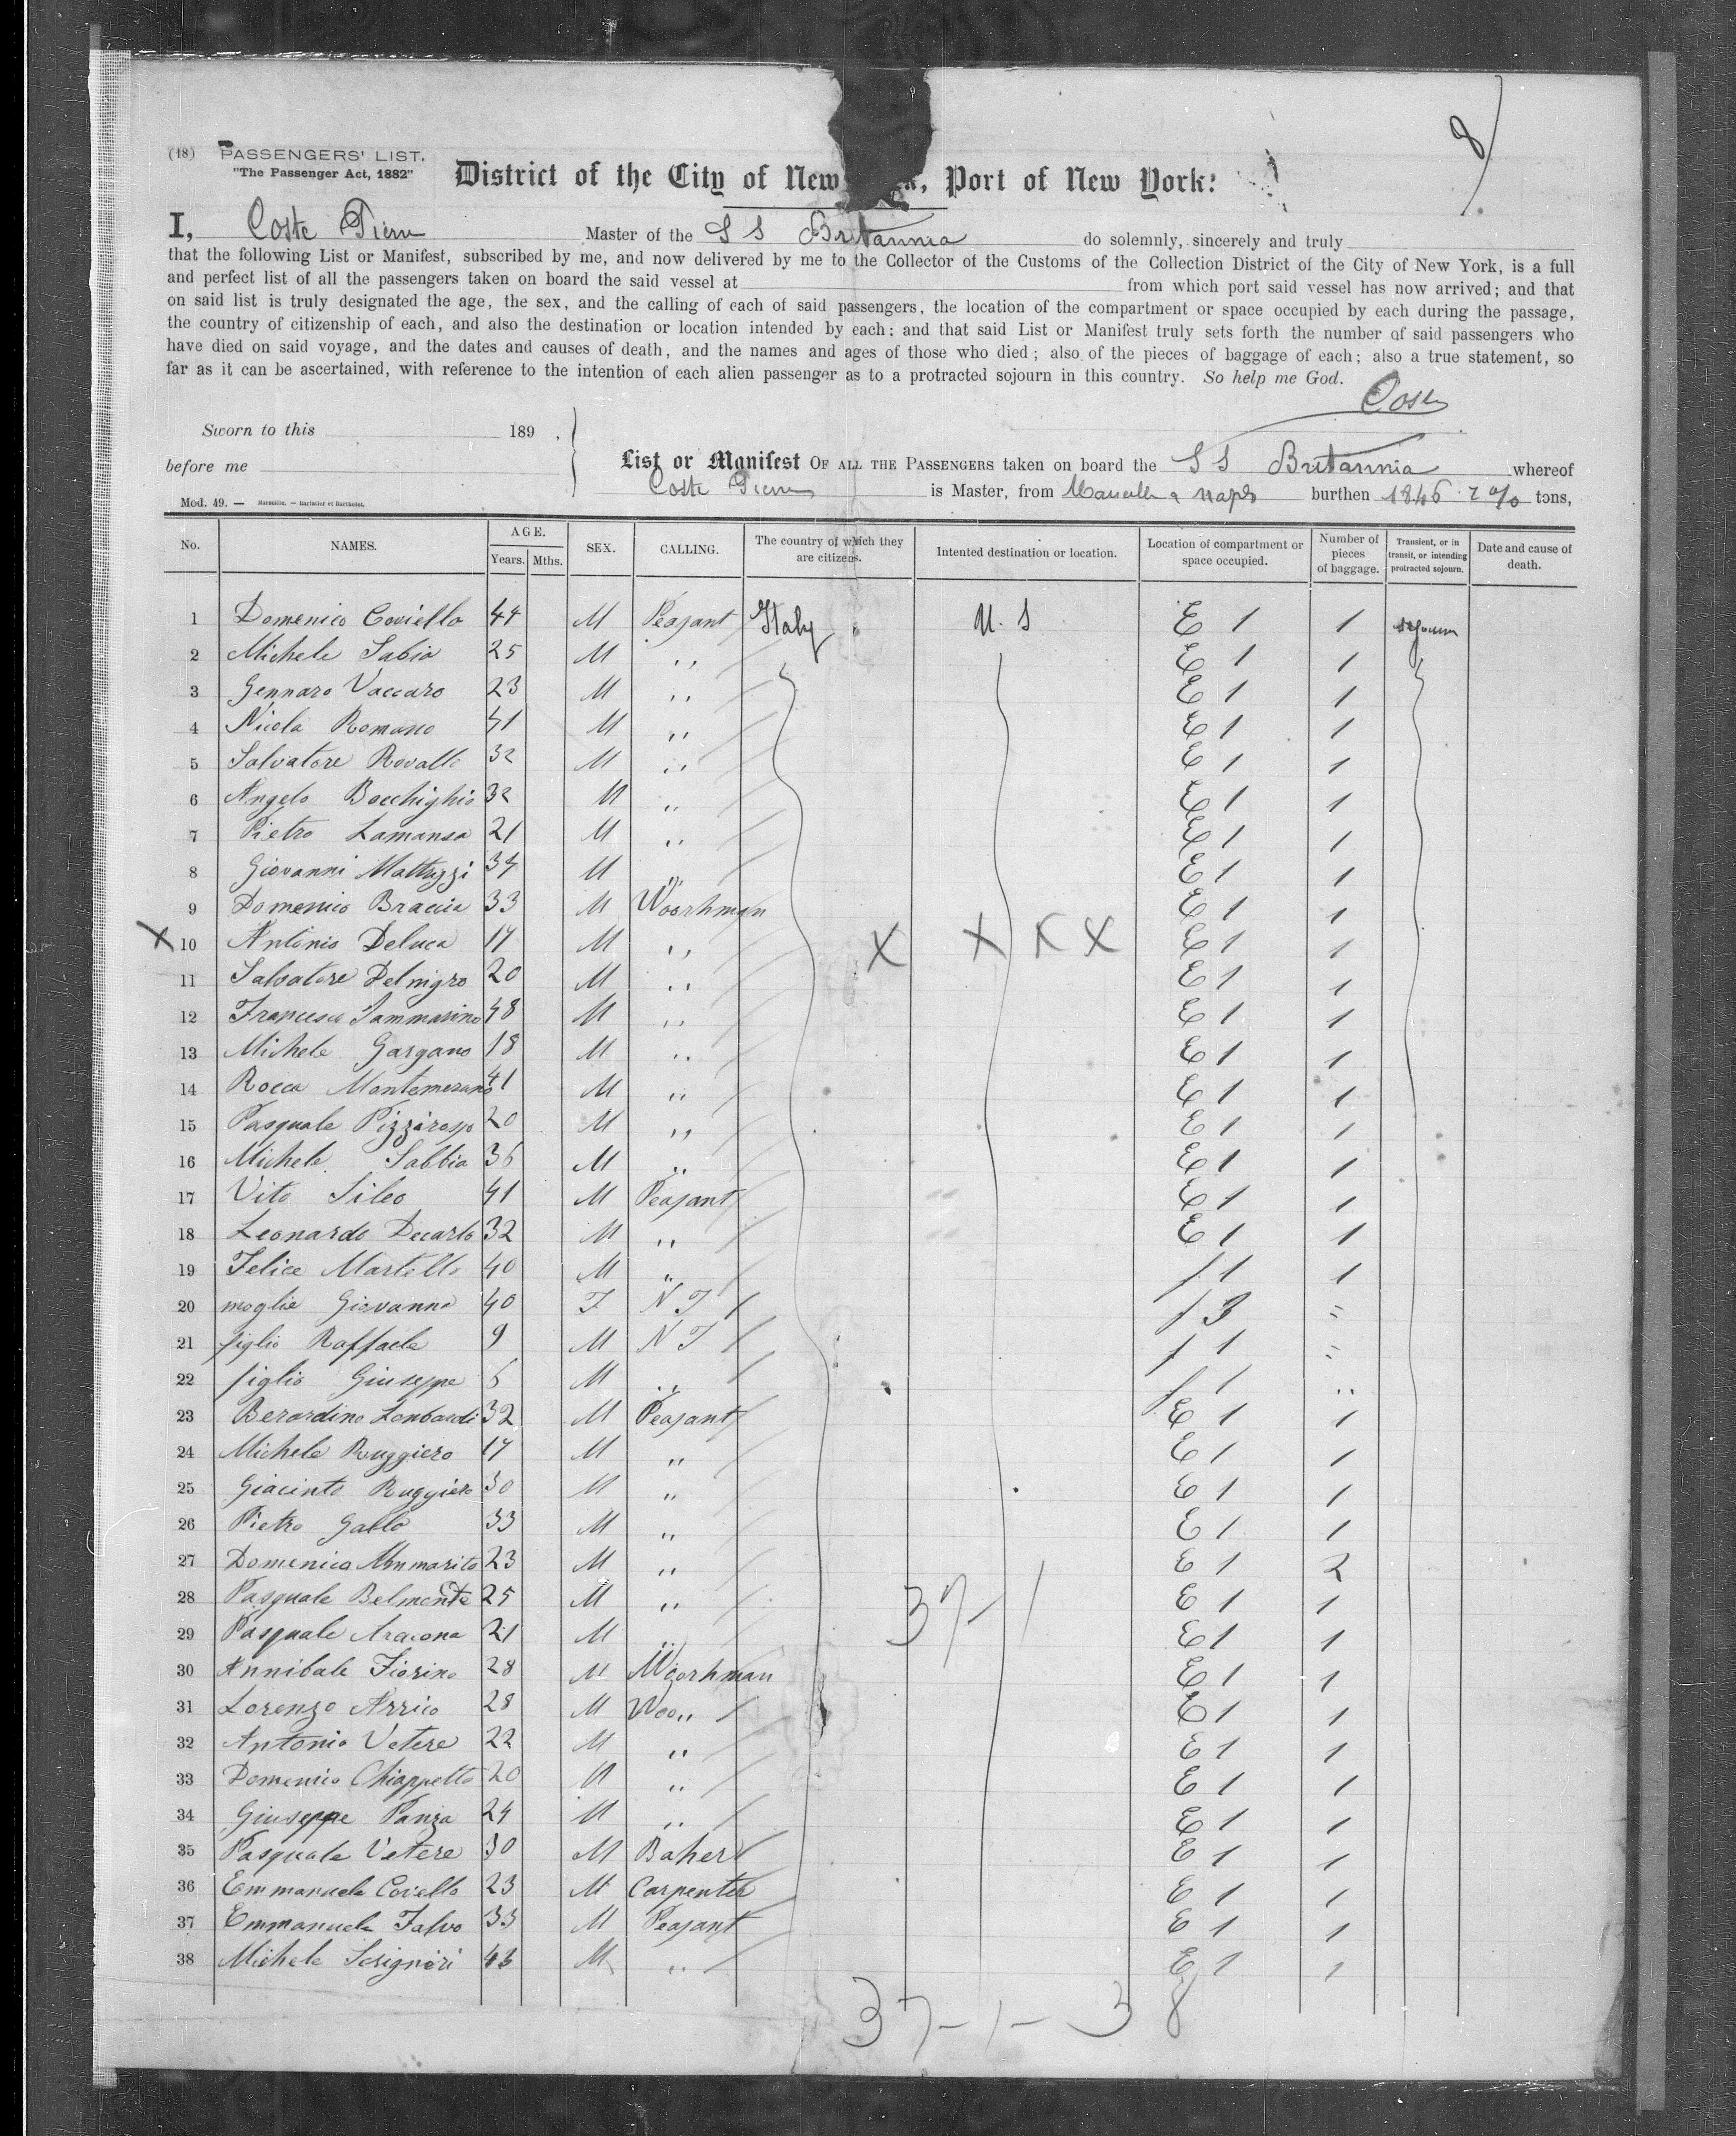 8
(18) PASSENGERS' LIST.
"The Passenger Act, 1882"
District of the City of New York, Port of New York:
I, Coste Pierre Master of the S S Britannia do solemnly, sincerely and truly
that the following List or Manifest, subscribed by me, and now delivered by me to the Collector of the Customs of the Collection District of the City of New York, is a full
and perfect list of all the passengers taken on board the said vessel at from which port said vessel has now arrived; and that
on said list is truly designated the age, the sex, and the calling of each of said passengers, the location of the compartment or space occupied by each during the passage,
the country of citizenship of each, and also the destination or location intended by each: and that said List or Manifest truly sets forth the number of said passengers who
have died on said voyage, and the dates and causes of death, and the names and ages of those who died; also of the pieces of baggage of each; also a true statement, so
far as it can be ascertained, with reference to the intention of each alien passenger as to a protracted sojourn in this country. So help me God.
Coste
Sworn to this 189 .
before me
List or Manifest OF ALL THE PASSENGERS taken on board the S S Britannia whereof
Coste Pierre is Master, from Marseille & Naples burthen 1846 7% tons,
Mod. 49. — Marseille. — Barlatier et Barthelet.
No. NAMES. AGE. Years. Mths. SEX. CALLING. The country of which they are citizens. Intented destination or location. Location of compartment or space occupied. Number of pieces of baggage. Transient, or in transit, or intending protracted sojourn. Date and cause of death.
1 Domenico Coviello 44 M Peasant Italy U. S E 1 1 sejourn
2 Michele Sabia 25 M ,, E 1 1
3 Gennaro Vaccaro 23 M ,, E 1 1
4 Nicola Romano 41 M ,, E 1 1
5 Salvatore Rovallo 32 M ,, E 1 1
6 Angelo Bocchighio 32 M ,, E 1 1
7 Pietro Lamansa 21 M ,, E 1 1
8 Giovanni Mattuzzi 34 M ,, E 1 1
9 Domenico Braccia 33 M Woorhman E 1 1
X 10 Antonio Deluca 17 M ,, X X X X E 1 1
11 Salvatore Delnigro 20 M ,, E 1 1
12 Francesco Sammarino 48 M ,, E 1 1
13 Michele Gargano 18 M ,, E 1 1
14 Rocca Montemerano 41 M ,, E 1 1
15 Pasquale Pizzirosso 20 M ,, E 1 1
16 Michele Sabbia 36 M ,, E 1 1
17 Vito Sileo 41 M Peasant E 1 1
18 Leonardo Decarlo 32 M ,, E 1 1
19 Felice Martello 40 M ,, / 1 1
20 moglie Giovanna 40 F N T / 3 =
21 figlio Raffaele 9 M N T / 1 =
22 figlio Giuseppe 6 M ,, / 1 ,,
23 Berardino Lonbardi 32 M Peasant E 1 1
24 Michele Ruggiero 17 M ,, E 1 1
25 Giacinto Ruggiero 30 M ,, E 1 1
26 Pietro Gallo 33 M ,, E 1 1
27 Domenico Mmmarito 23 M ,, E 1 2
28 Pasquale Belmonte 25 M ,, 37-1 E 1 1
29 Pasquale Aracona 21 M ,, E 1 1
30 Annibale Fiorino 28 M Woorhman E 1 1
31 Lorenzo Arrico 28 M Woo,, E 1 1
32 Antonio Vetere 22 M ,, E 1 1
33 Domenico Chiappetto 20 M ,, E 1 1
34 Giuseppe Panza 24 M ,, E 1 1
35 Pasquale Vetere 30 M Baher E 1 1
36 Emmanuele Coviello 23 M Carpenter E 1 1
37 Emmanuele Falvo 33 M Peasant E 1 1
38 Michele Serignori 43 M ,, E 1 1
37-1-38